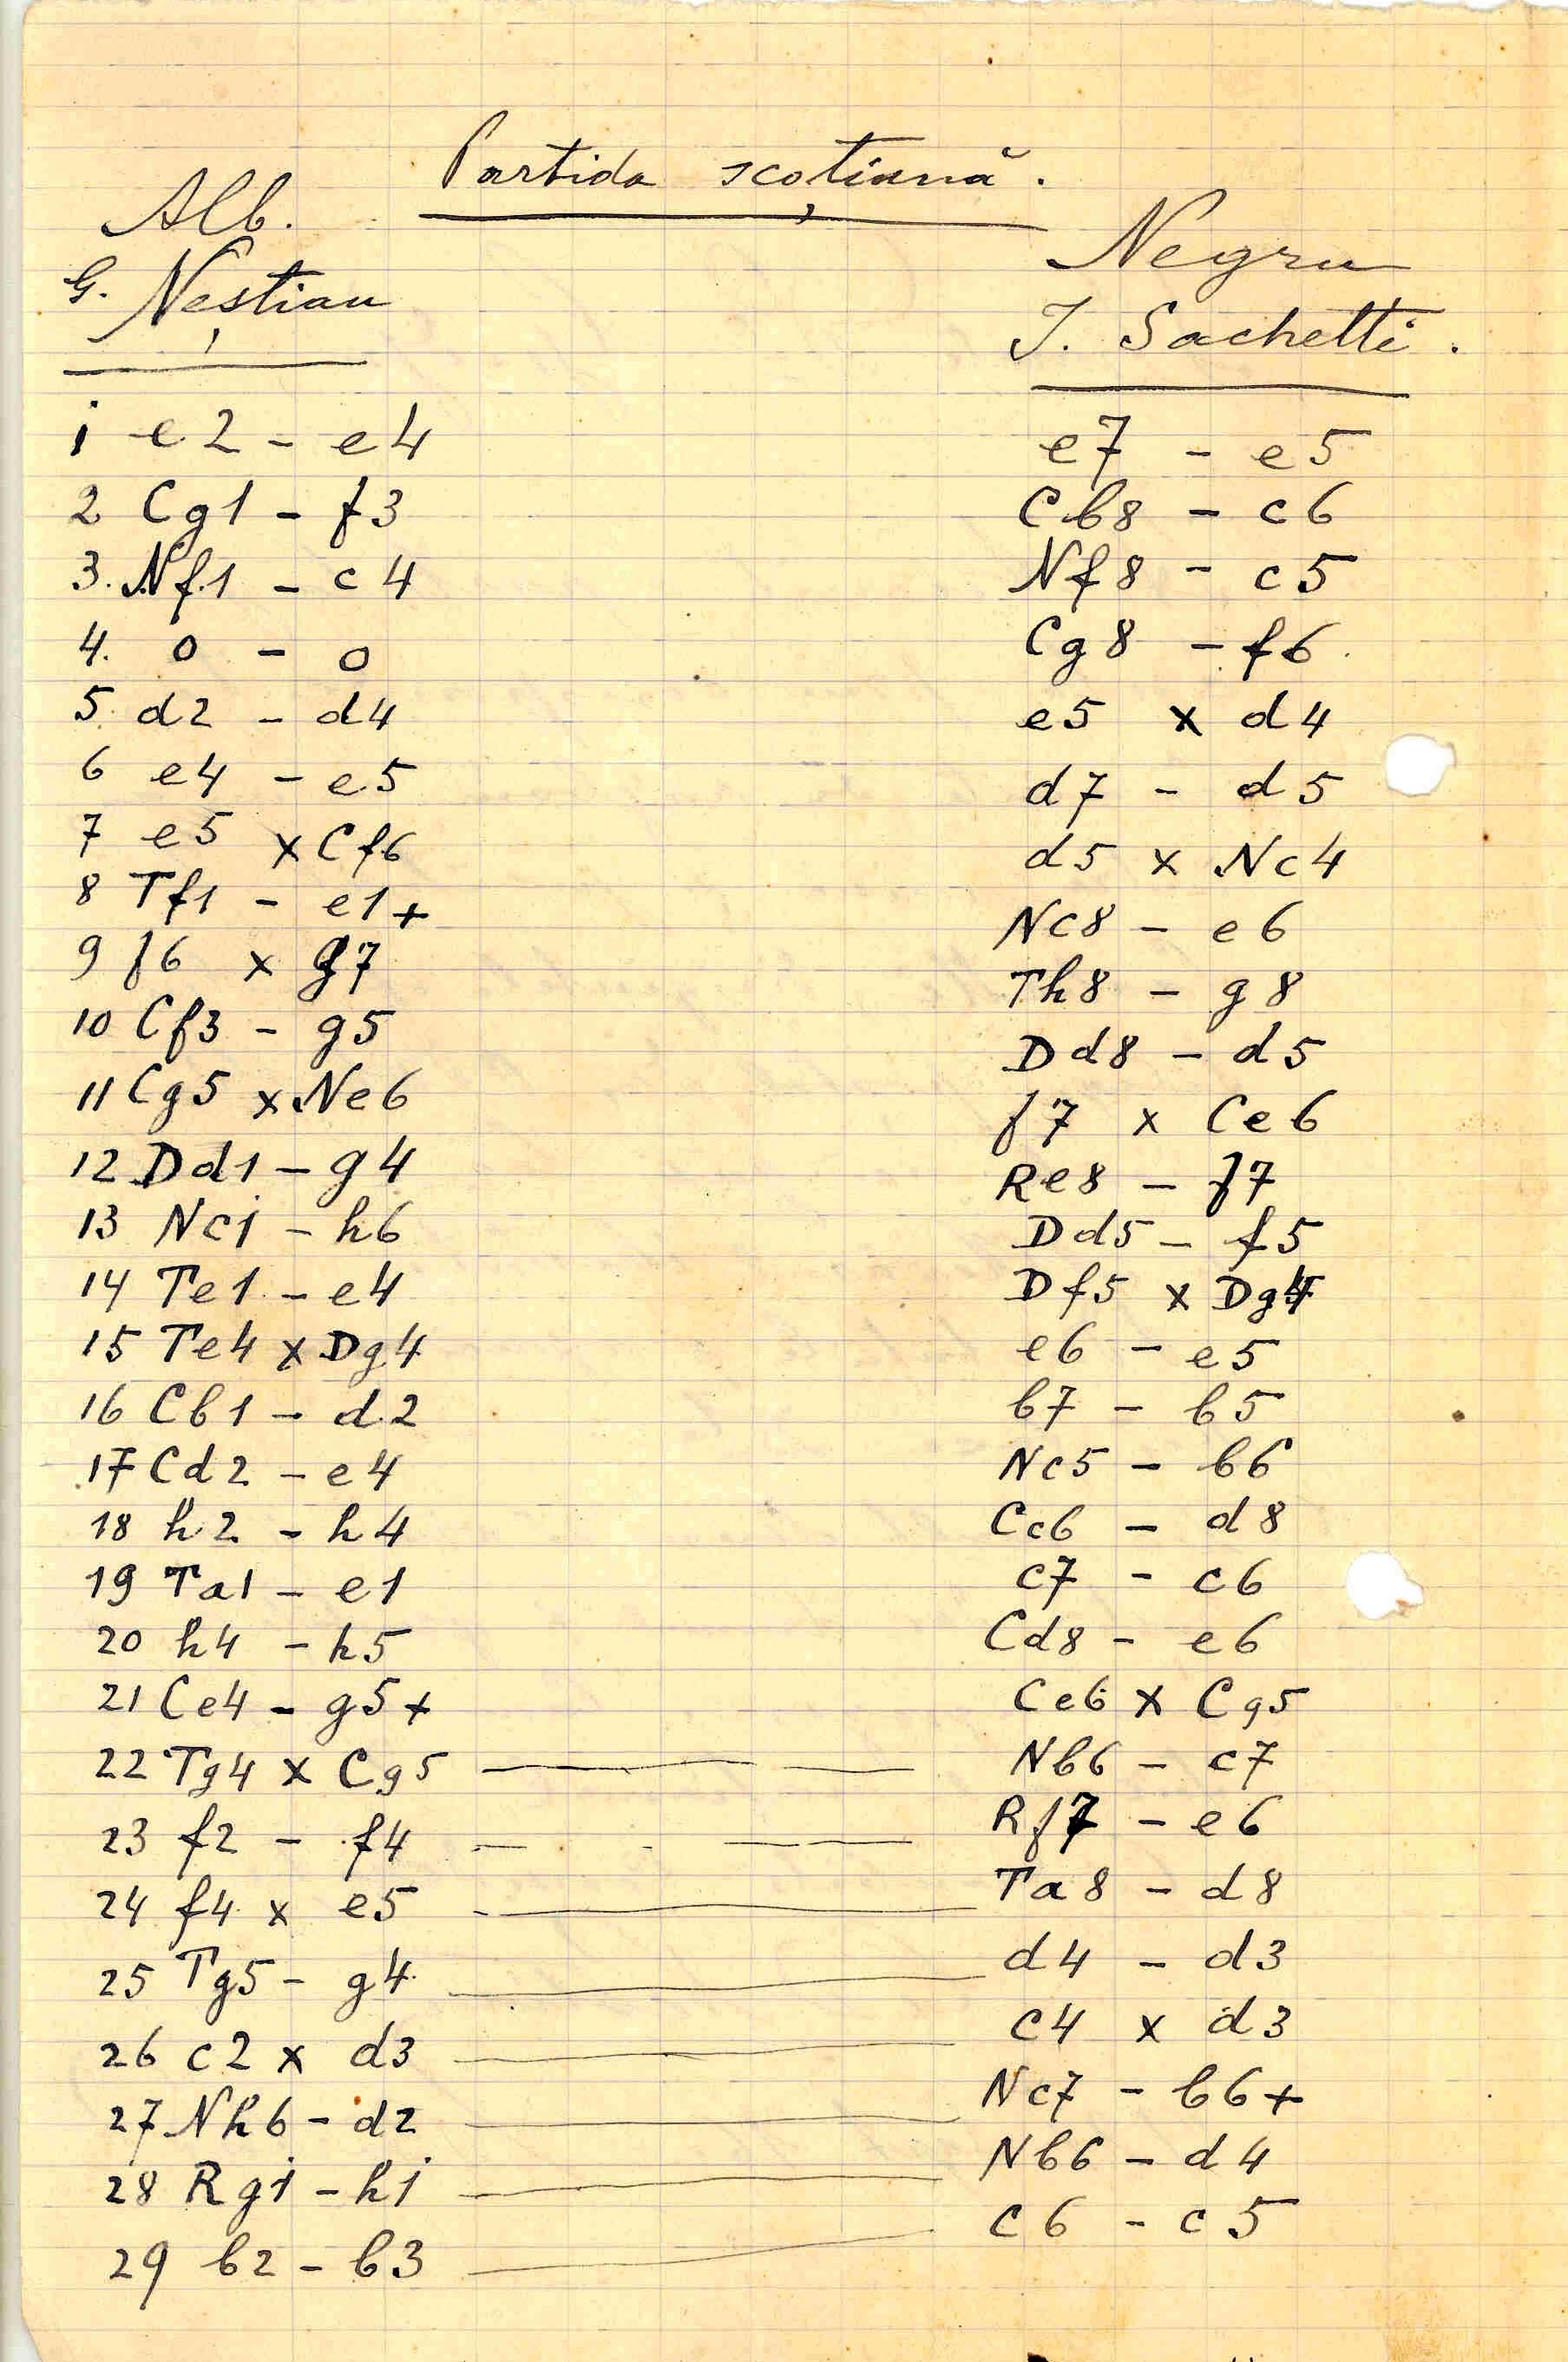 Partida scoțiană.
Alb. Negru
G. Neștian J. Sachetti.
1 e2 - e4 e7 - e5
2 Cg1 - f3 Cb8 - c6
3. Nf1 - c4 Nf8 - c5
4. o - o Cg8 - f6.
5. d2 - d4 e5 x d4
6 e4 - e5 d7 - d5
7 e5 x Cf6 d5 x Nc4
8 Tf1 - e1+ Nc8 - e6
9 f6 x g7 Th8 - g8
10 Cf3 - g5 Dd8 - d5
11 Cg5 x Ne6 f7 x Ce6
12 Dd1 - g4 Re8 - f7
13 Nc1 - h6 Dd5 - f5
14 Te1 - e4 Df5 x Dg4
15 Te4 x Dg4 e6 - e5
16 Cb1 - d2 b7 - b5
17 Cd2 - e4 Nc5 - b6
18 h2 - h4 Cc6 - d8
19 Ta1 - e1 c7 - c6
20 h4 - h5 Cd8 - e6
21 Ce4 - g5+ Ce6 x Cg5
22 Tg4 x Cg5 Nb6 - c7
23 f2 - f4 Rf7 - e6
24 f4 x e5 Ta8 - d8
25 Tg5 - g4 d4 - d3
26 c2 x d3 c4 x d3
27 Nh6 - d2 Nc7 - b6+
28 Rg1 - h1 Nb6 - d4
29 b2 - b3 c6 - c5